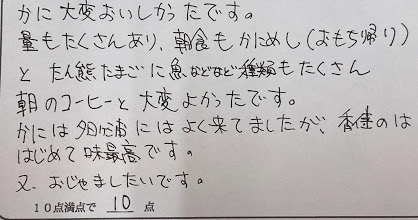 かに大変おいしかったです。
量もたくさんあり、朝食もかにめし(おもち帰り)
と たん熊たまごに魚などなど種類もたくさん
朝のコーヒーと大変よかったです。
かには 浦にはよく来てましたが、香住のは
はじめて 味最高です。
又、おじゃましたいです。
10点満点で 10 点